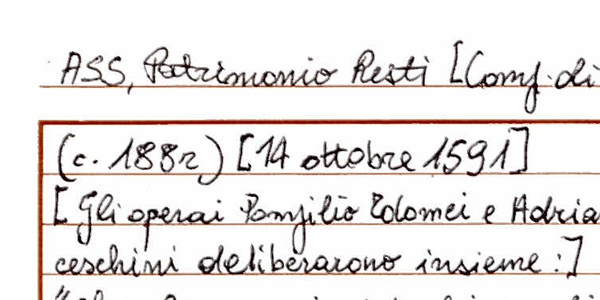 ASS, Patrimonio Resti [Comp. di
(c. 188r) [14 ottobre 1591]
[Gli operai Pompilio Tolomei e Adria
ceschini deliberarono insieme:]